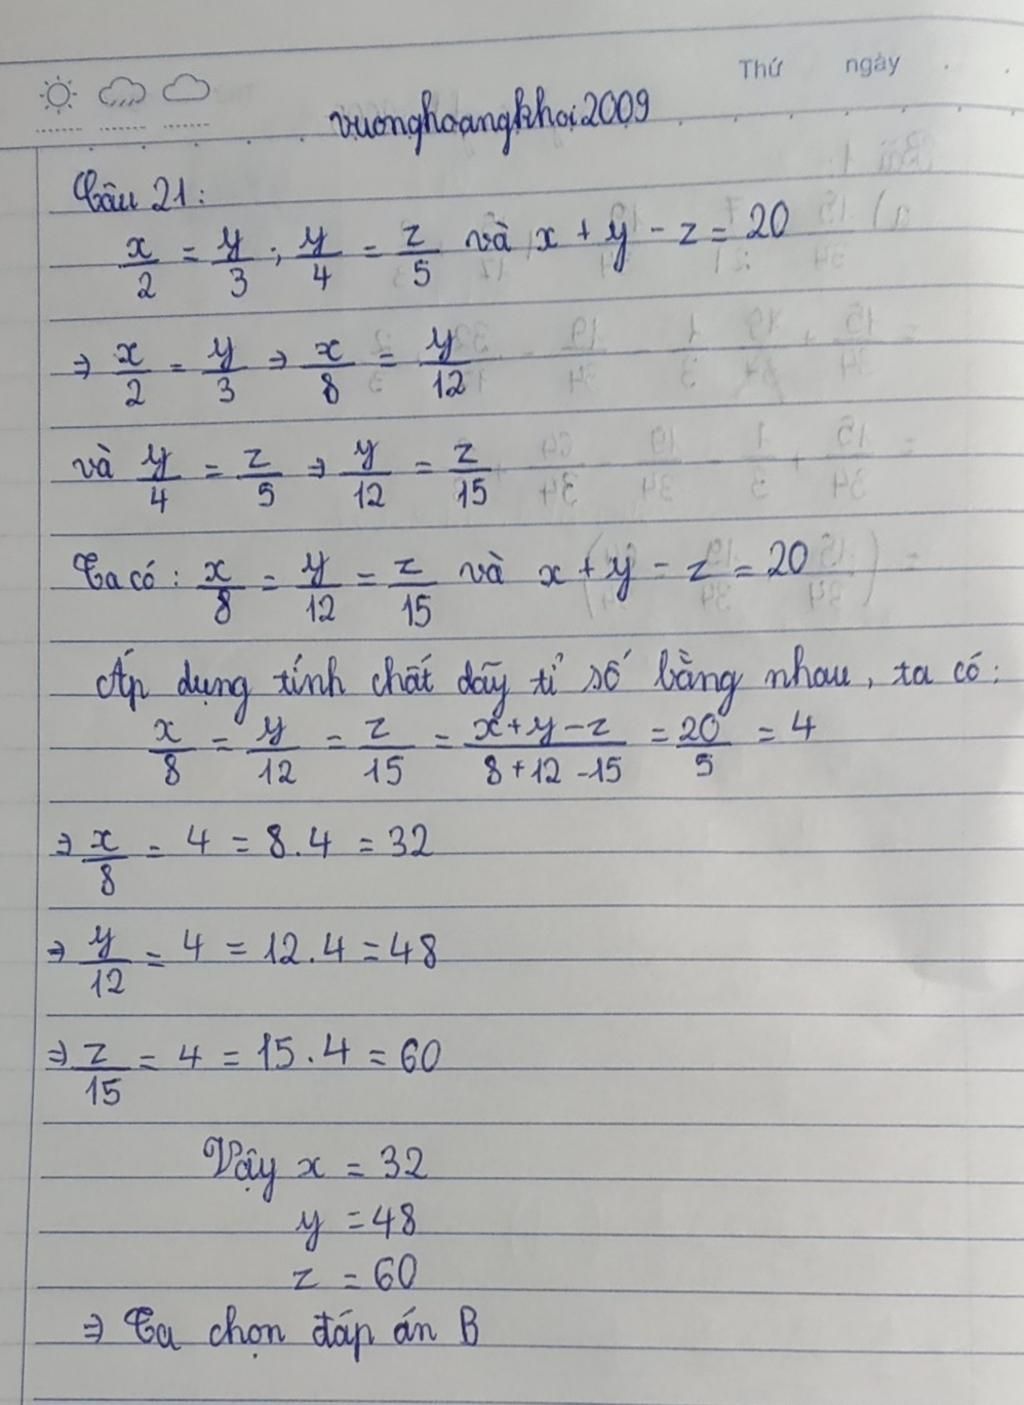 Thứ ngày
vuonghoangkhoi2009
Câu 21:
x/2 = y/3 ; y/4 = z/5 và x + y - z = 20
⇒ x/2 = y/3 ⇒ x/8 = y/12
và y/4 = z/5 ⇒ y/12 = z/15
Ta có : x/8 = y/12 = z/15 và x + y - z = 20
Áp dụng tính chất dãy tỉ số bằng nhau, ta có:
x/8 = y/12 = z/15 = x+y-z/8+12-15 = 20/5 = 4
⇒ x/8 = 4 = 8.4 = 32
⇒ y/12 = 4 = 12.4 = 48
⇒ z/15 = 4 = 15.4 = 60
Vậy x = 32
y = 48
z = 60
⇒ Ta chọn đáp án B